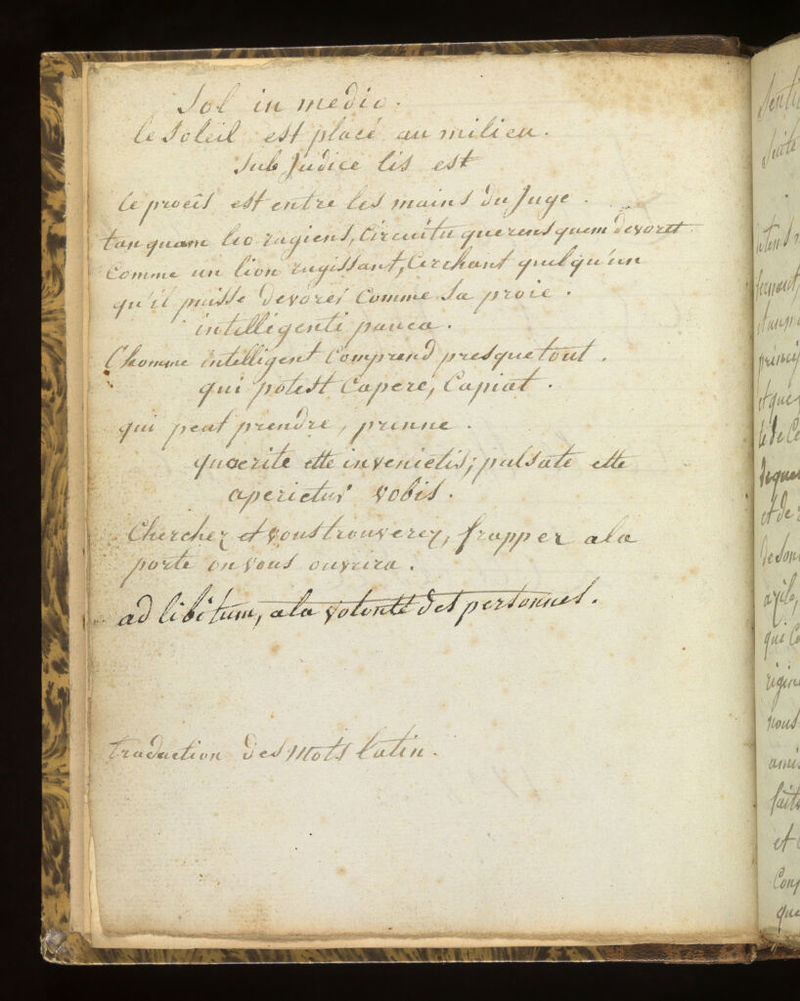 Sol in medio.
le Soleil est placé au milieu.
Sub Judice lis est
le proceis est entre les mains du Juge.
tanquam leo rugiens, Circuitu querens quem devoret
Comme un lion rugissant, Cerchant quelqu'un
qu'il puisse devorer Comme Sa proie.
intelligenti pauca.
l'homme intelligent Comprend presque tout.
qui potest Capere, Capiat.
qui peut prendre, prenne.
quaerite ette invenietis; pulsate ette
aperietur vobis.
Cherchez et vous trouverez, frapper a la
porte on vous ouvrira.
ad libitum, a la volonté des personnes.
traduction des Mots latin.